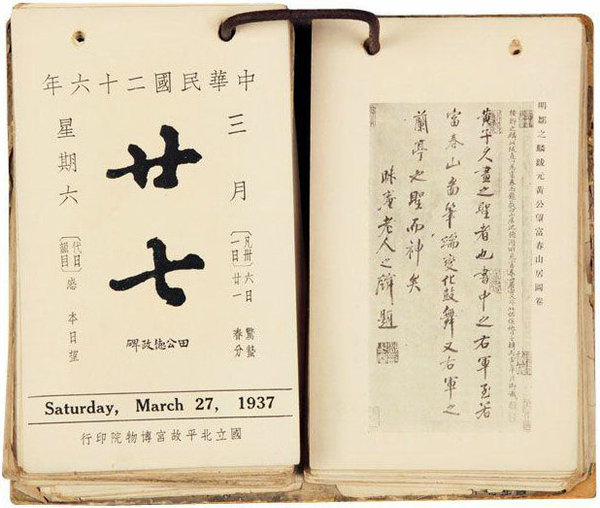 中華民國二十六年
三月
〔凡卅一日〕六日 驚蟄
廿一 春分
廿七
田公德政碑
星期六
〔代日韻目〕感 本日望
Saturday, March 27, 1937
國立北平故宮博物院印行
明鄒之麟跋元黃公望富春山居圖卷
黃子久畫之聖者也書中之右軍至若
富春山圖筆端變化鼓舞又右軍之
蘭亭也聖而神矣
昧庵老人之麟題